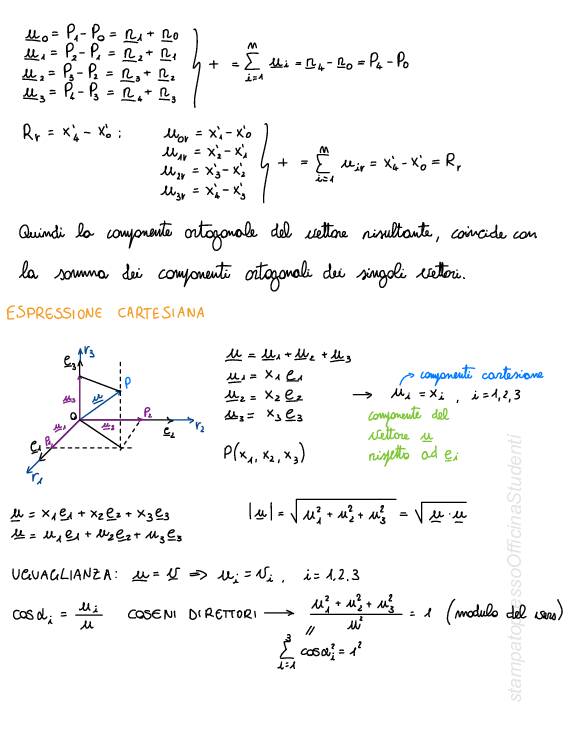 u₀ = P₁ - P₀ = r₁ + r₀
u₁ = P₂ - P₁ = r₂ + r₁
u₂ = P₃ - P₂ = r₃ + r₂
u₃ = P₄ - P₃ = r₄ + r₃
+ = ∑ᵢ₌₁ⁿ uᵢ = r₄ - r₀ = P₄ - P₀
Rᵣ = x'₄ - x'₀ ;
u₀ᵣ = x'₁ - x'₀
u₁ᵣ = x'₂ - x'₁
u₂ᵣ = x'₃ - x'₂
u₃ᵣ = x'₄ - x'₃
+ = ∑ᵢ₌₁ⁿ uᵢᵣ = x'₄ - x'₀ = Rᵣ
Quindi la componente ortogonale del vettore risultante, coincide con
la somma dei componenti ortogonali dei singoli vettori.
ESPRESSIONE CARTESIANA
r₃
e₃
u₃
u
P
O
P₂
u₁
u₂
e₂
r₂
e₁
P₁
r₁
u = u₁ + u₂ + u₃
u₁ = x₁ e₁
u₂ = x₂ e₂
u₃ = x₃ e₃
P(x₁, x₂, x₃)
componenti cartesiane
→ uᵢ = xᵢ , i = 1,2,3
componente del
vettore u
rispetto ad eᵢ
u = x₁e₁ + x₂e₂ + x₃e₃
u = u₁e₁ + u₂e₂ + u₃e₃
|u| = √(u₁² + u₂² + u₃²) = √(u · u)
UGUAGLIANZA: u = v ⇒ uᵢ = vᵢ , i = 1,2,3
cosαᵢ = uᵢ/u COSENI DIRETTORI → (u₁² + u₂² + u₃²)/u² = 1 (modulo del vers)
∑ᵢ₌₁³ cosαᵢ² = 1²
stampatopressoOfficinaStudenti